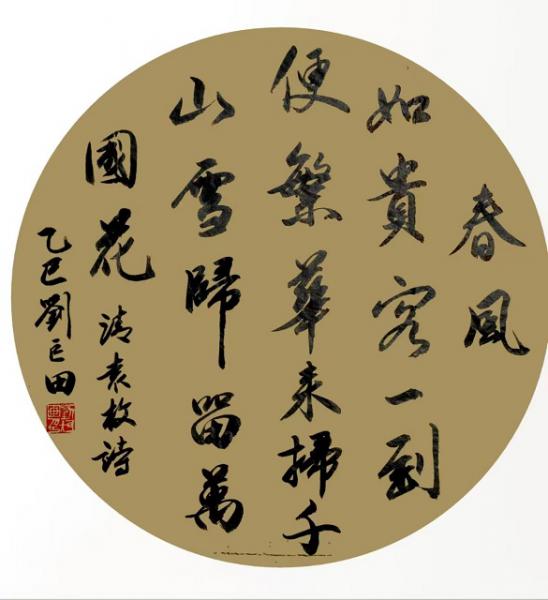 春風
如貴客一到
便繁華来掃千
山雪歸留萬
國花 清袁枚詩
乙巳劉田